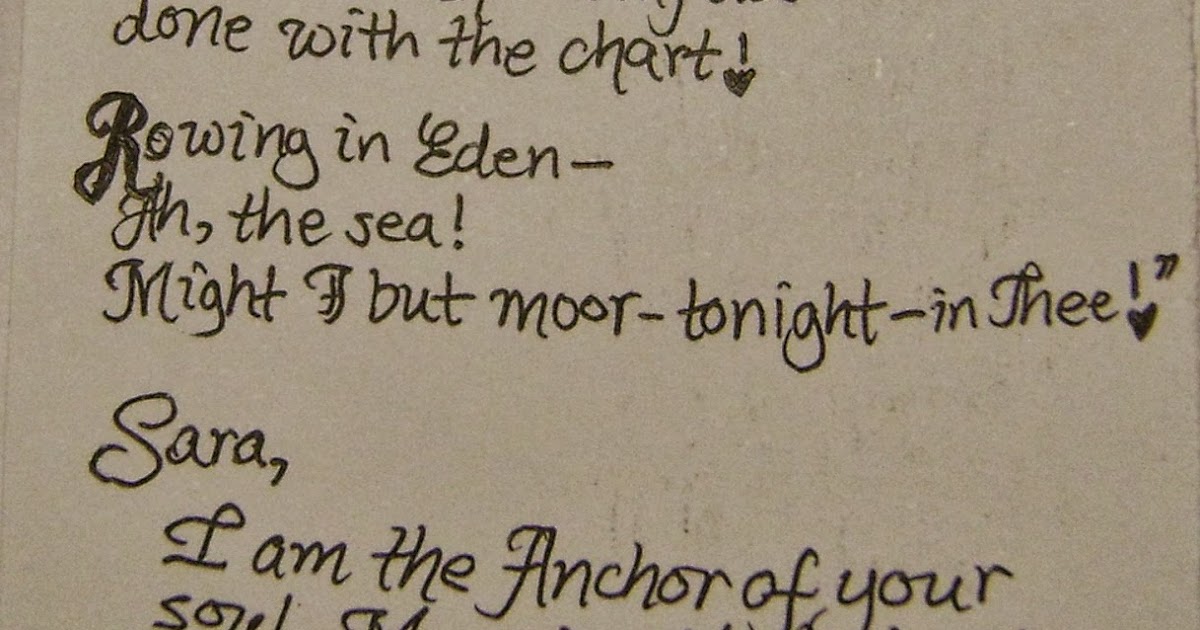 done with the chart!
Rowing in Eden—
Ah, the sea!
Might I but moor-tonight-in Thee!”
Sara,
I am the Anchor of your
soul